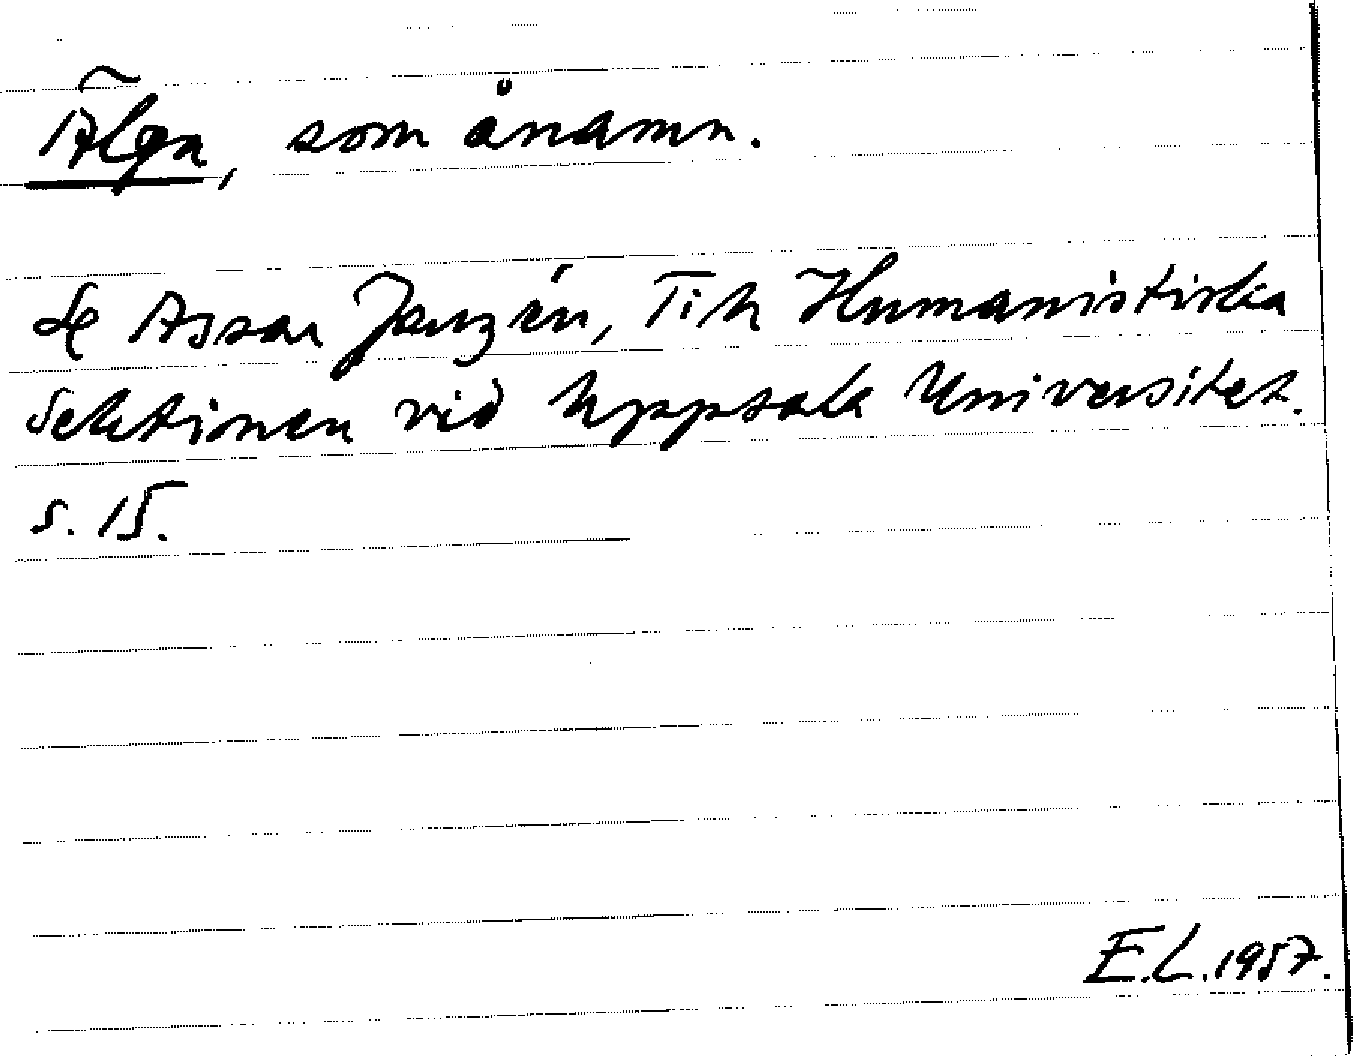 Älga, som ånamn.
Se Assar Janzén, Till Humanistiska
Sektionen vid Uppsala Universitet.
s. 15.
E.L. 1957.